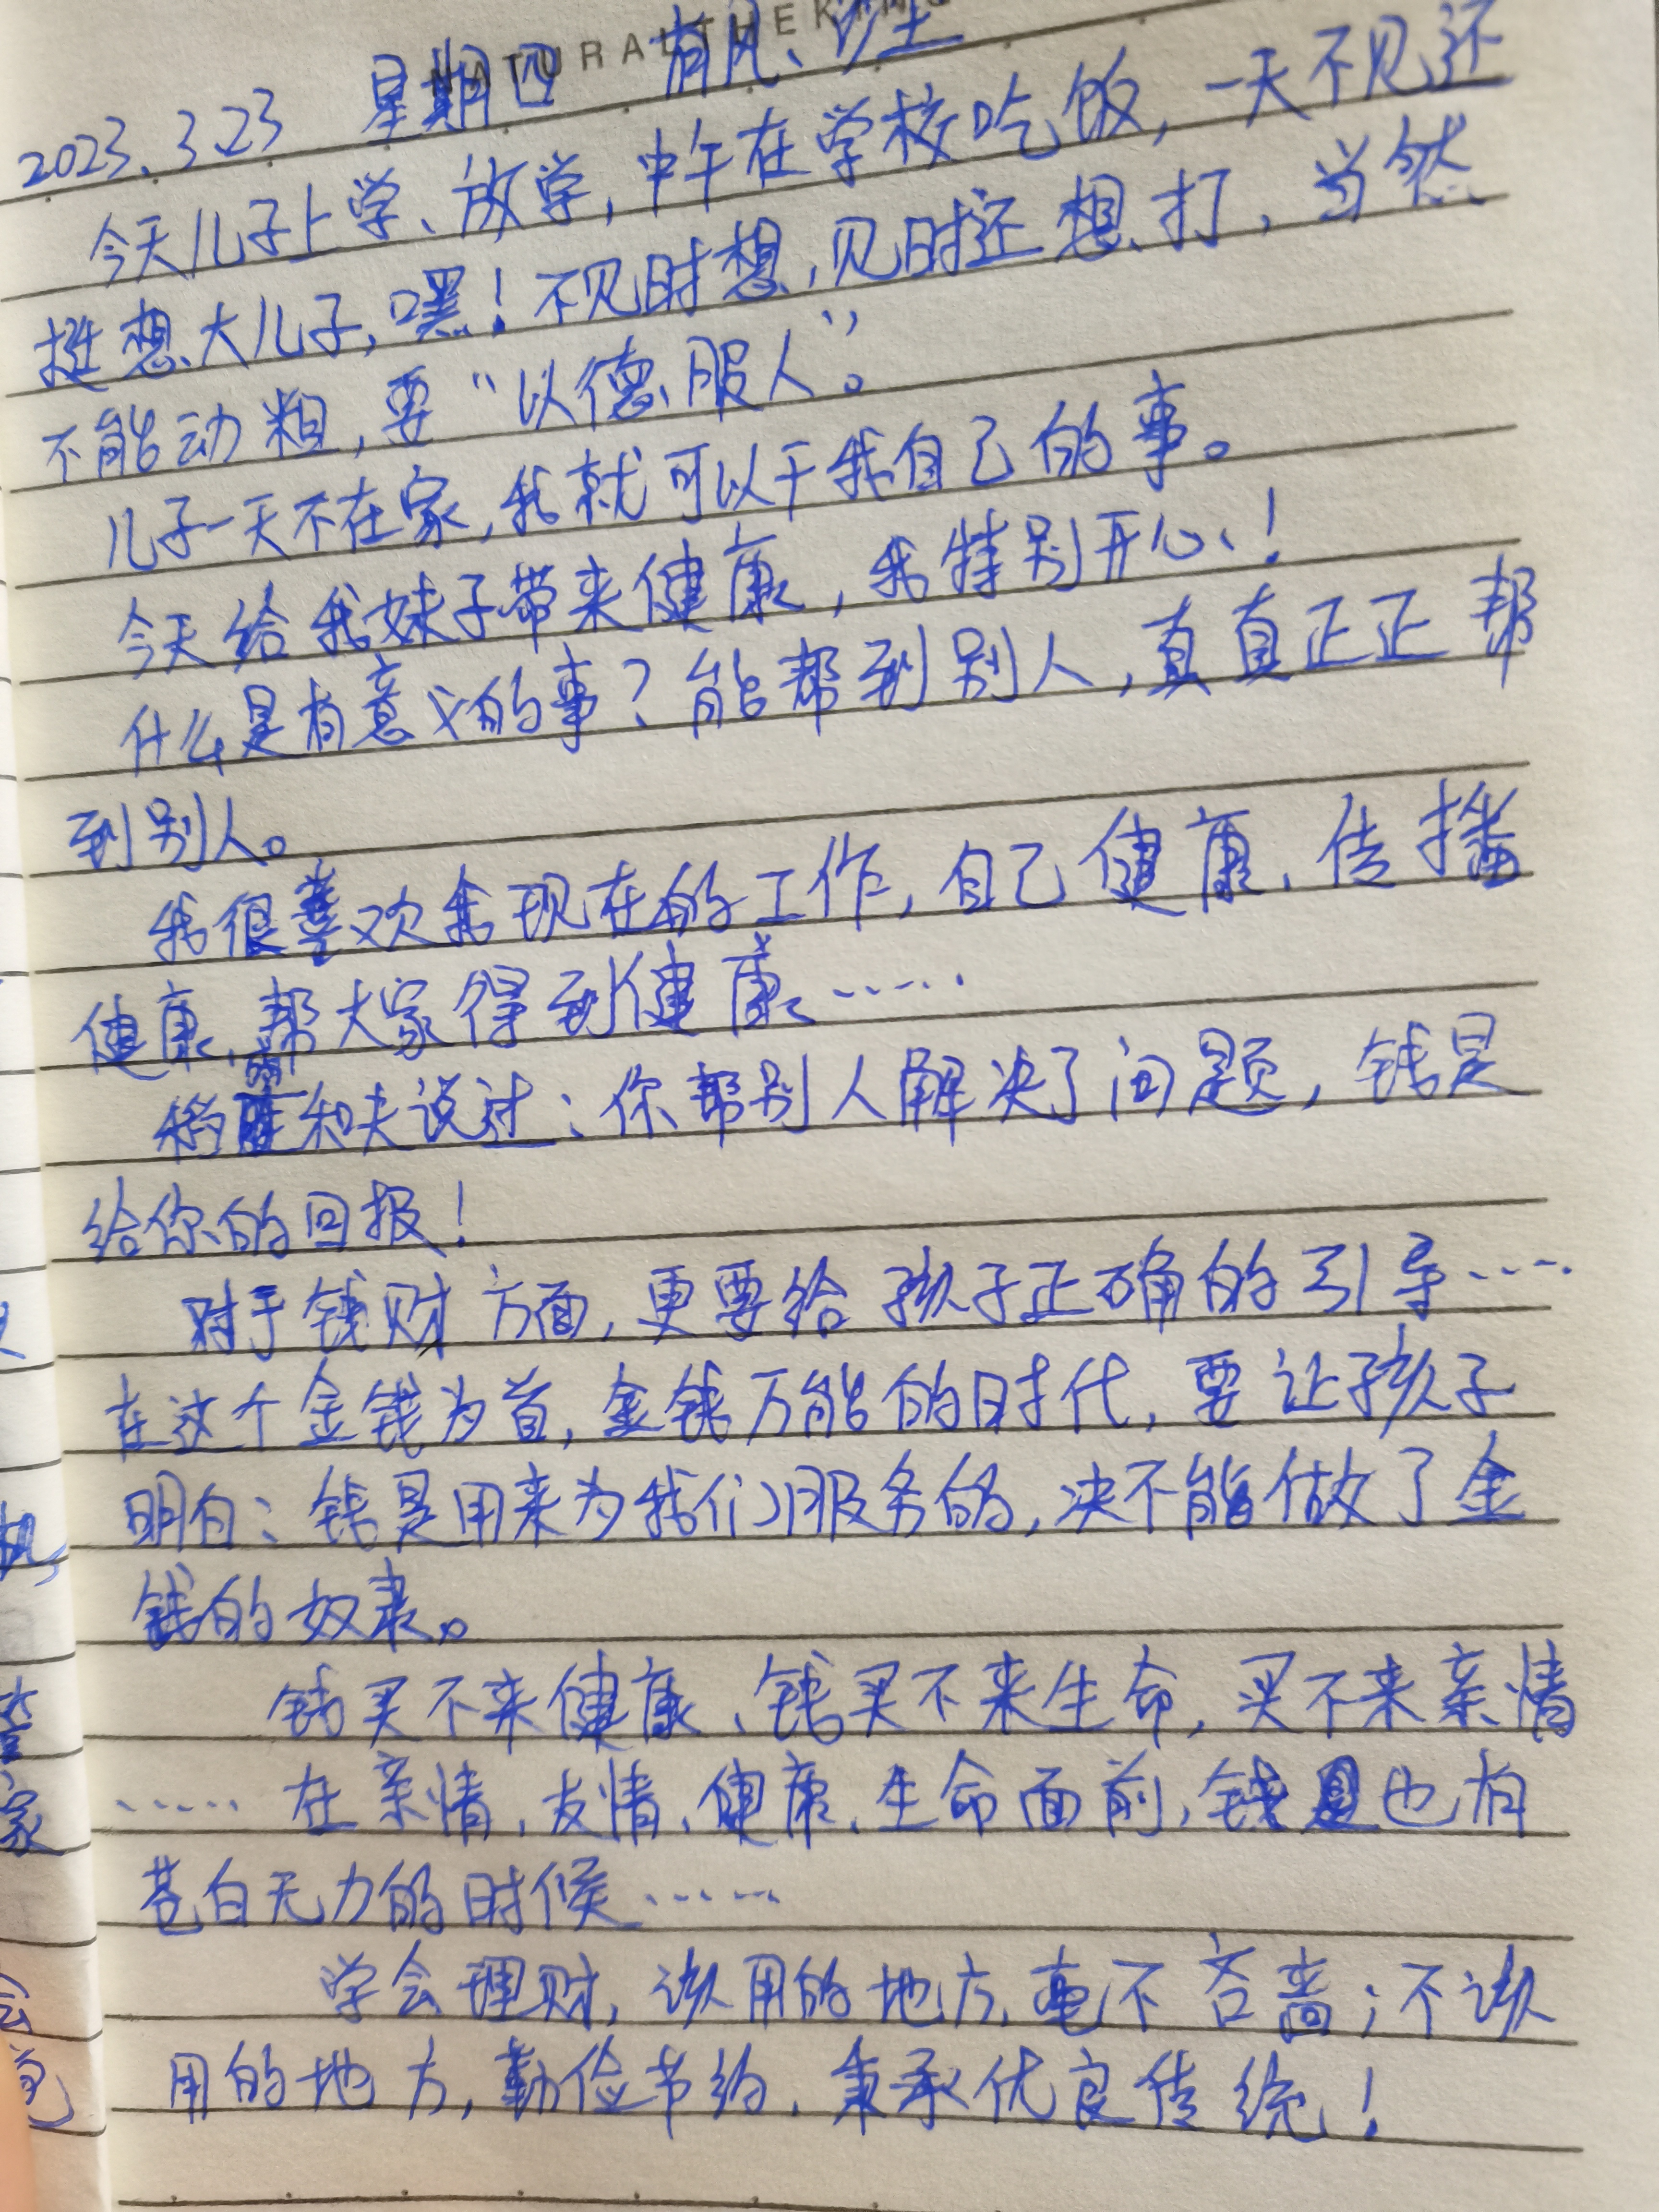 NATURALTHEK
2023.3.23 星期四 有风、沙土
今天儿子上学、放学,中午在学校吃饭,一天不见还
挺想大儿子,嘿!不见时想,见时还想打,当然
不能动粗,要“以德服人”。
儿子一天不在家,我就可以干我自己的事。
今天给我妹子带来健康,我特别开心!
什么是有意义的事?能帮到别人,真真正正帮
到别人。
我很喜欢我现在的工作,自己健康、传播
健康、帮大家得到健康……
稻盛和夫说过:你帮别人解决了问题,钱是
给你的回报!
对于钱财方面,更要给孩子正确的引导……
在这个金钱为首,金钱万能的时代,要让孩子
明白:钱是用来为我们服务的,决不能做了金
钱的奴隶。
钱买不来健康、钱买不来生命,买不来亲情
……在亲情,友情、健康、生命面前,钱是也有
苍白无力的时候……
学会理财,该用的地方,毫不吝啬;不该
用的地方,勤俭节约,秉承优良传统!